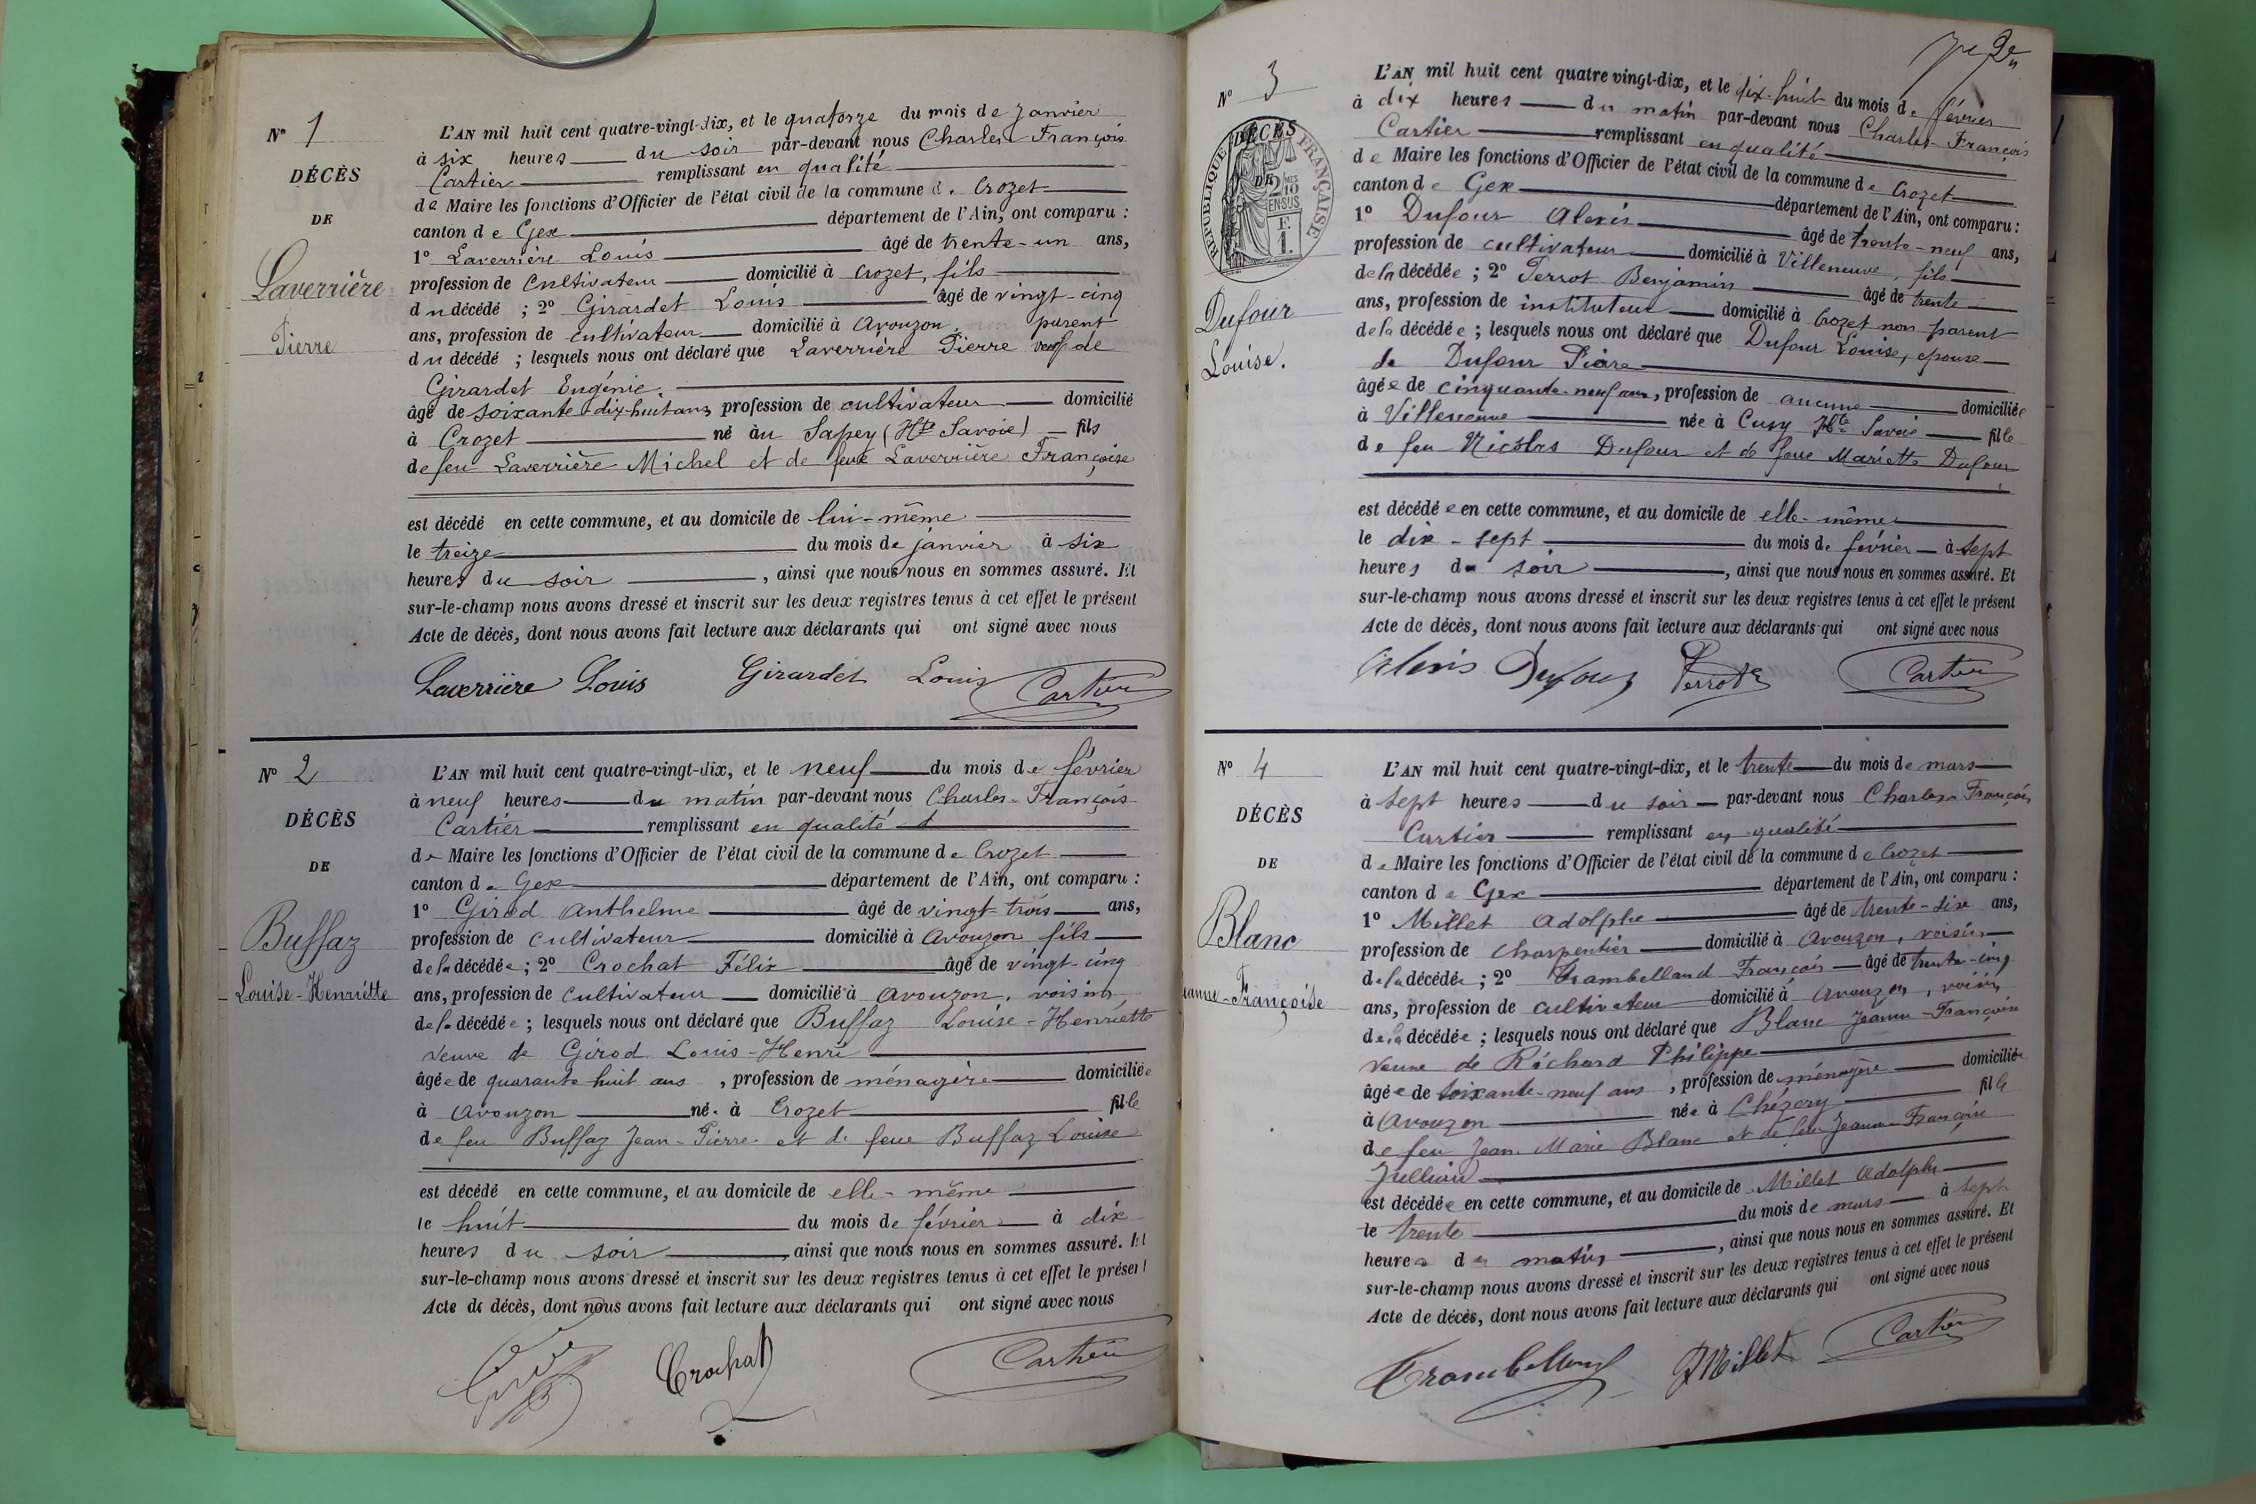 N° 1
DÉCÈS
DE
Laverrière
Pierre
L'AN mil huit cent quatre-vingt-dix, et le quatorze du mois de janvier
à six heures du soir par-devant nous Charles François
Cartier remplissant en qualité
de Maire les fonctions d'Officier de l'état civil de la commune de Crozet
canton de Gex département de l'Ain, ont comparu :
1° Laverrière Louis âgé de trente-un ans,
profession de cultivateur domicilié à Crozet, fils
du décédé ; 2° Girardet Louis âgé de vingt-cinq
ans, profession de cultivateur domicilié à Avouzon, parent
du décédé ; lesquels nous ont déclaré que Laverrière Pierre veuf de
Girardet Eugénie.
âgé de soixante dix-huit ans, profession de cultivateur domicilié
à Crozet né au Sapey (Hte Savoie) fils
de feu Laverrière Michel et de feue Laverrière Françoise
est décédé en cette commune, et au domicile de lui-même
le treize du mois de janvier à six
heures du soir , ainsi que nous nous en sommes assuré. Et
sur-le-champ nous avons dressé et inscrit sur les deux registres tenus à cet effet le présent
Acte de décès, dont nous avons fait lecture aux déclarants qui ont signé avec nous
Laverrière Louis Girardet Louis Cartier
N° 2
DÉCÈS
DE
Buffaz
Louise-Henriette
L'AN mil huit cent quatre-vingt-dix, et le neuf du mois de février
à neuf heures du matin par-devant nous Charles-François
Cartier remplissant en qualité d
de Maire les fonctions d'Officier de l'état civil de la commune de Crozet
canton de Gex département de l'Ain, ont comparu :
1° Girod Anthelme âgé de vingt-trois ans,
profession de cultivateur domicilié à Avouzon fils
de la décédée ; 2° Crochat Félix âgé de vingt-cinq
ans, profession de cultivateur domicilié à Avouzon, voisin
de la décédée ; lesquels nous ont déclaré que Buffaz Louise-Henriette
veuve de Girod Louis-Henri
âgée de quarante huit ans , profession de ménagère domiciliée
à Avouzon née à Crozet fille
de feu Buffaz Jean-Pierre et de feue Buffaz Louise
est décédé en cette commune, et au domicile de elle-même
le huit du mois de février à dix
heures du soir , ainsi que nous nous en sommes assuré. Et
sur-le-champ nous avons dressé et inscrit sur les deux registres tenus à cet effet le présent
Acte de décès, dont nous avons fait lecture aux déclarants qui ont signé avec nous
Crochat Cartier
N° 3
DÉCÈS
DE
RÉPUBLIQUE FRANÇAISE
2/10 EN SUS
F. 1.
Dufour
Louise.
L'AN mil huit cent quatre vingt-dix, et le dix-huit du mois de février
à dix heures du matin par-devant nous Charles-François
Cartier remplissant en qualité
de Maire les fonctions d'Officier de l'état civil de la commune de Crozet
canton de Gex département de l'Ain, ont comparu :
1° Dufour Alexis âgé de trente-neuf ans,
profession de cultivateur domicilié à Villeneuve, fils
de la décédée ; 2° Perrot Benjamin âgé de trente
ans, profession de instituteur domicilié à Crozet non parent
de la décédée ; lesquels nous ont déclaré que Dufour Louise, epouse
de Dufour Piere
âgée de cinquante-neuf ans, profession de aucune domiciliée
à Villeneuve née à Cusy Hte Savoie fille
de feu Nicolas Dufour et de feue Mariette Dufour
est décédée en cette commune, et au domicile de elle-même
le dix-sept du mois de février à sept
heures du soir , ainsi que nous nous en sommes assuré. Et
sur-le-champ nous avons dressé et inscrit sur les deux registres tenus à cet effet le présent
Acte de décès, dont nous avons fait lecture aux déclarants qui ont signé avec nous
Alexis Dufour Perrot Cartier
N° 4
DÉCÈS
DE
Blanc
Jeanne-Françoise
L'AN mil huit cent quatre-vingt-dix, et le trente du mois de mars
à sept heures du soir par-devant nous Charles François
Cartier remplissant en qualité
de Maire les fonctions d'Officier de l'état civil de la commune de Crozet
canton de Gex département de l'Ain, ont comparu :
1° Millet Adolphe âgé de trente-six ans,
profession de charpentier domicilié à Avouzon, voisin
de la décédée ; 2° Trambelland François âgé de trente-cinq
ans, profession de cultivateur domicilié à Avouzon, voisin
de la décédée ; lesquels nous ont déclaré que Blanc Jeanne-Françoise
veuve de Richard Philippe
âgée de soixante-neuf ans , profession de ménagère domiciliée
à Avouzon née à Chézery fille
de feu Jean Marie Blanc et de feu Jeanne-Françoise
Julliard
est décédée en cette commune, et au domicile de Millet Adolphe
le trente du mois de mars à sept
heures du matin , ainsi que nous nous en sommes assuré. Et
sur-le-champ nous avons dressé et inscrit sur les deux registres tenus à cet effet le présent
Acte de décès, dont nous avons fait lecture aux déclarants qui ont signé avec nous
Millet Cartier